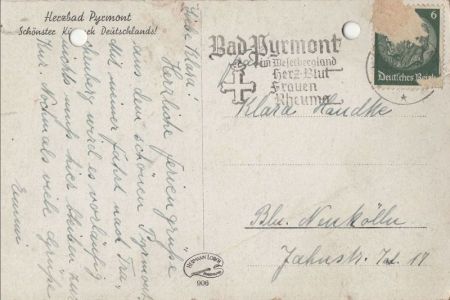 Herzbad Pyrmont
Schönster Kurpark Deutschlands!
Liebe Klara!
Herzliche Feriengrüße
aus dem schönen Pyrmont.
Mit meiner Fahrt nach
wird es vorläufig
nichts muß hier bleiben zur
Kur. Nochmals viele Grüße
Bad Pyrmont
im Weserbergland
Herz-Blut
Frauen
Rheuma
6
Deutsches Reich
Klara Handke
Bln. Neukölln
Jahnstr. 14
906